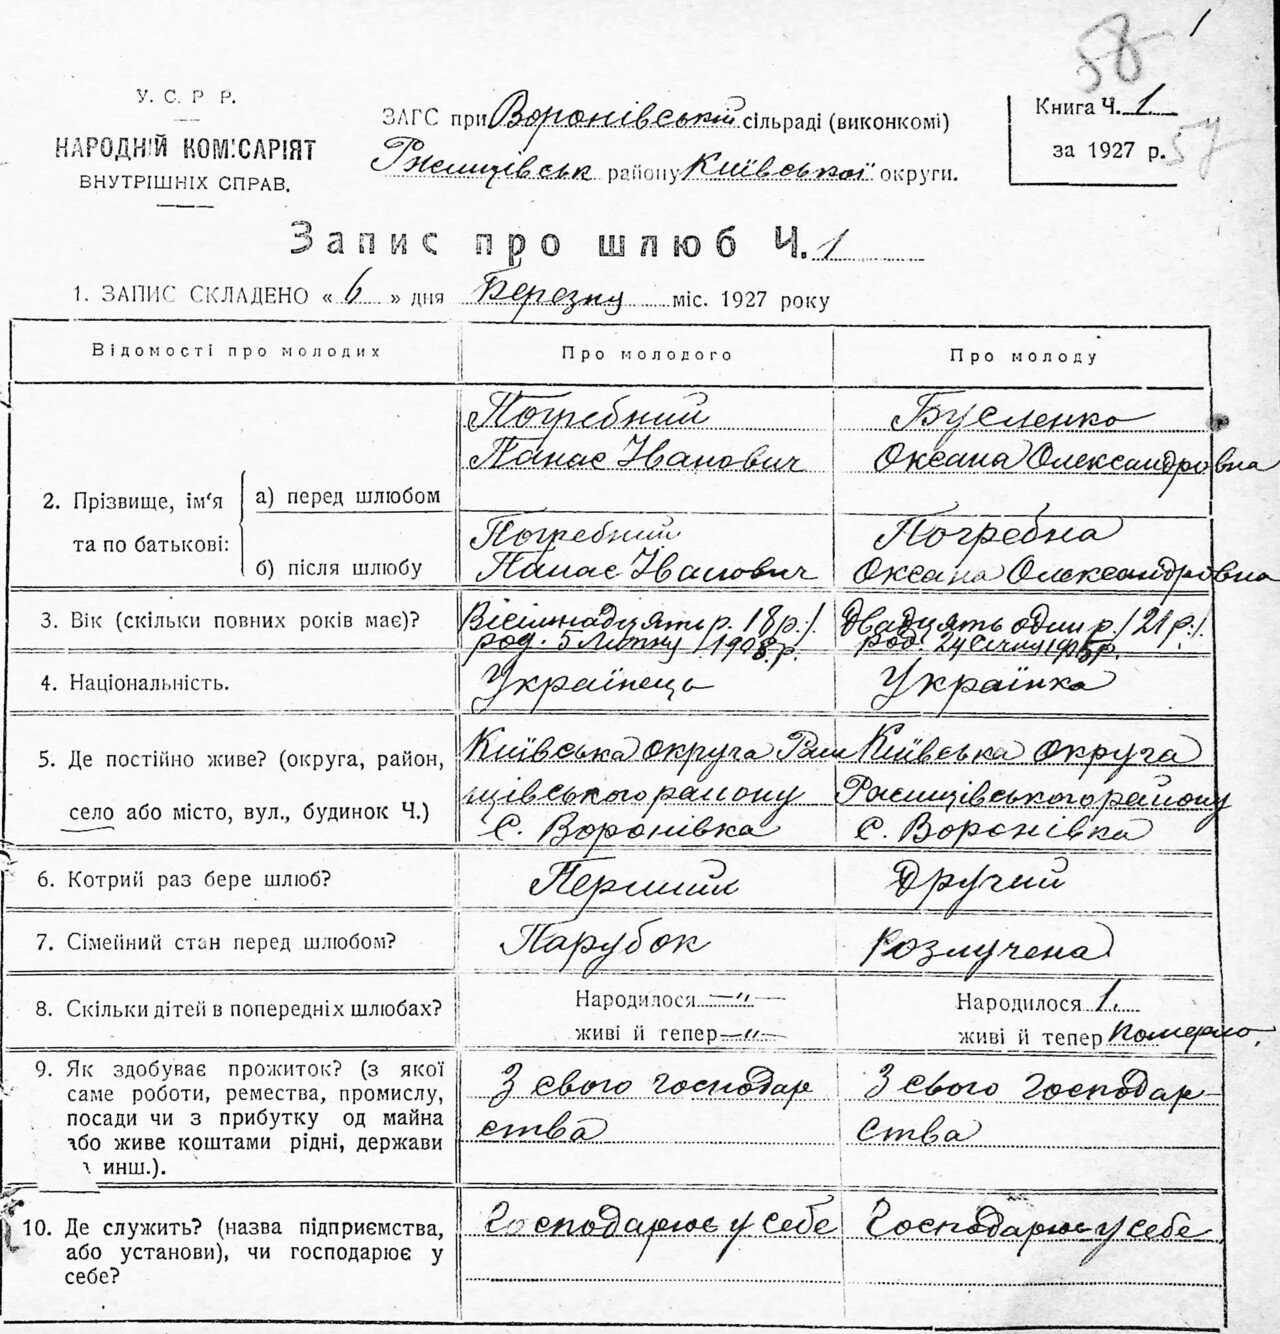 1
58
У. С. Р Р.
НАРОДНІЙ КОМІСАРІЯТ
ВНУТРІШНІХ СПРАВ.
ЗАГС при Воронівській сільраді (виконкомі)
Ржищівськ району Київської округи.
Книга Ч. 1
за 1927 р.
57
Запис про шлюб Ч. 1
1. ЗАПИС СКЛАДЕНО « 6 » дня Березну міс. 1927 року
Відомості про молодих Про молодого Про молоду
Погребний Бусленко
Панас Іванович Оксана Олександровна
2. Прізвище, ім'я а) перед шлюбом
та по батькові:
Погребний Погребна
б) після шлюбу Панас Іванович Оксана Олександровна
3. Вік (скільки повних років має)? Вісімнадцять р. 18 р. /. Двадцять один р. / 21 р. /.
род. 5 Лютну 1908 р. род. 24 Січну 1905 р.
4. Національність. Українець Українка
5. Де постійно живе? (округа, район, Київська округа Ржи Київська округа
село або місто, вул., будинок Ч.) щівського району Ржищівського району
с. Воронівка с. Воронівка
6. Котрий раз бере шлюб? Перший Другий
7. Сімейний стан перед шлюбом? Парубок Розлучена
8. Скільки дітей в попередніх шлюбах? Народилося —"— Народилося 1.
живі й тепер —"— живі й тепер Померло.
9. Як здобуває прожиток? (з якої З свого господар З свого господар-
саме роботи, ремества, промислу, ства ства
посади чи з прибутку од майна
або живе коштами рідні, держави
инш.).
10. Де служить? (назва підприємства, Господарює у себе Господарює у себе
або установи), чи господарює у
себе?